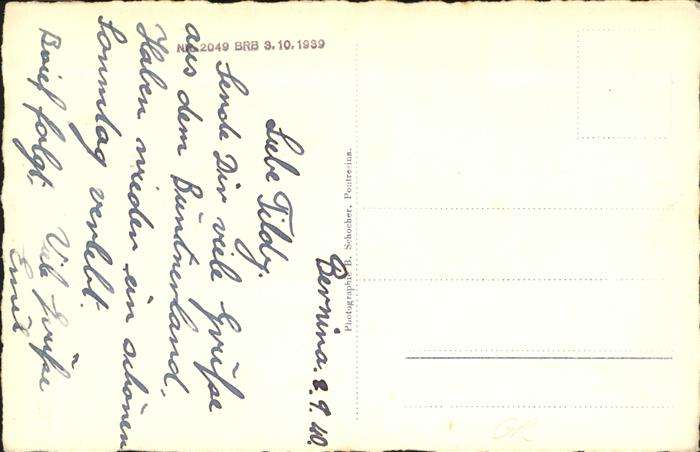 Nr. 2049 BRB 3.10.1939
Bernina. 2.9.40.
Liebe Tildy.
Sende Dir viele Grüsse
aus dem Bündnerland.
Haben wieder ein schönen
Sonntag verlebt.
Brief folgt. Viele Grüsse
Emil
Photographie B. Schocher, Pontresina.